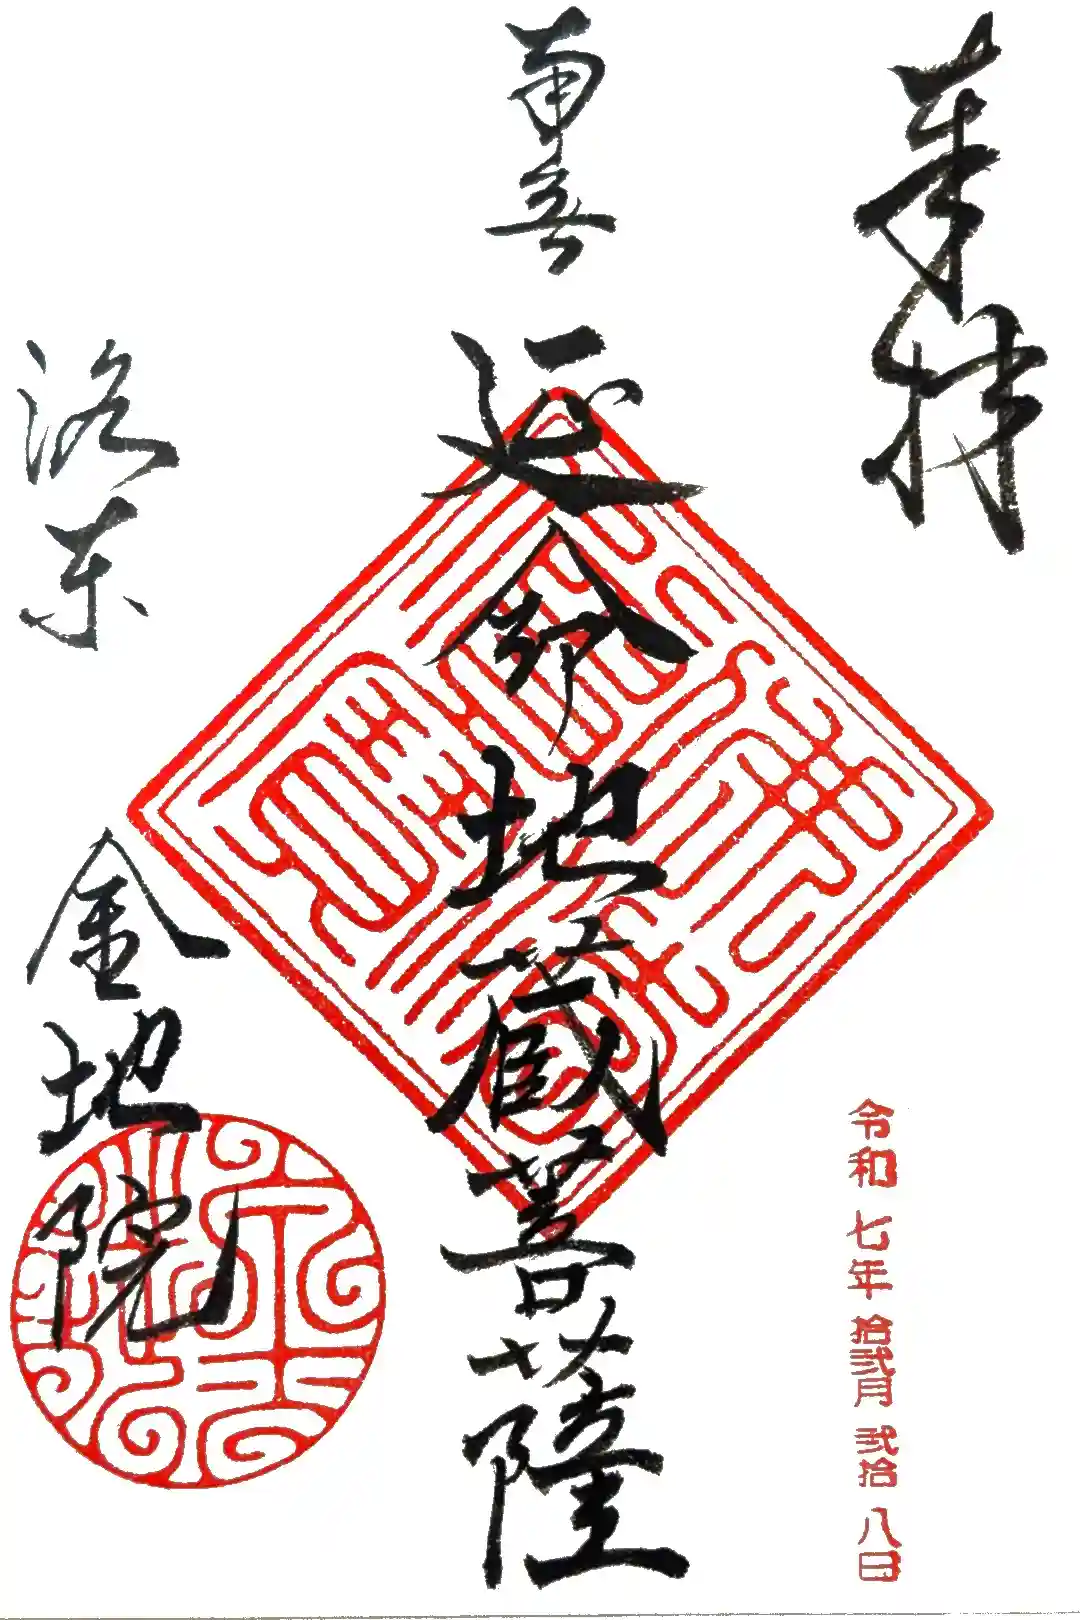 奉拝
令和七年拾弐月弐拾八日
南無
延命地蔵菩薩
洛東
金地院